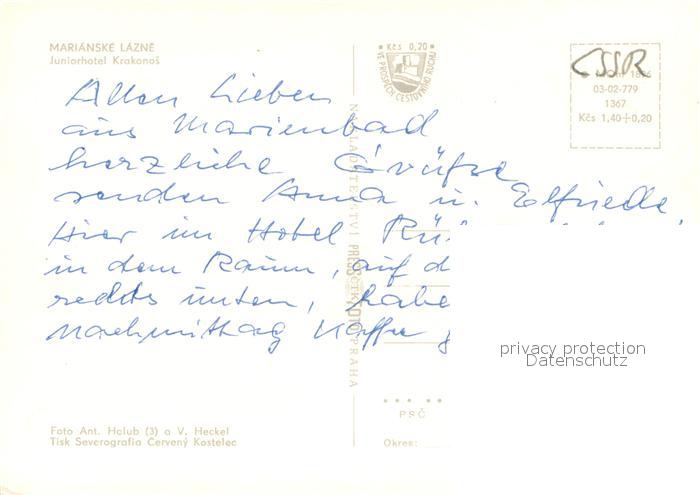 MARIÁNSKÉ LÁZNĚ
Juniorhotel Krakonoš
Kčs 0,20
VE PROSPĚCH CESTOVNÍHO RUCHU
ČSSR
03-02-779
1367
Kčs 1,40+0,20
Allen Lieben
aus Marienbad
herzliche Grüße
senden Anna u. Elfriede.
Hier im Hotel
in dem Raum, auf d
rechts unten, habe
Nachmittag Kaffee g
NAKLADATELSTVÍ PRESSFOTO PRAHA
privacy protection
Datenschutz
PSČ
Foto Ant. Holub (3) a V. Heckel
Tisk Severografia Červený Kostelec
Okres: